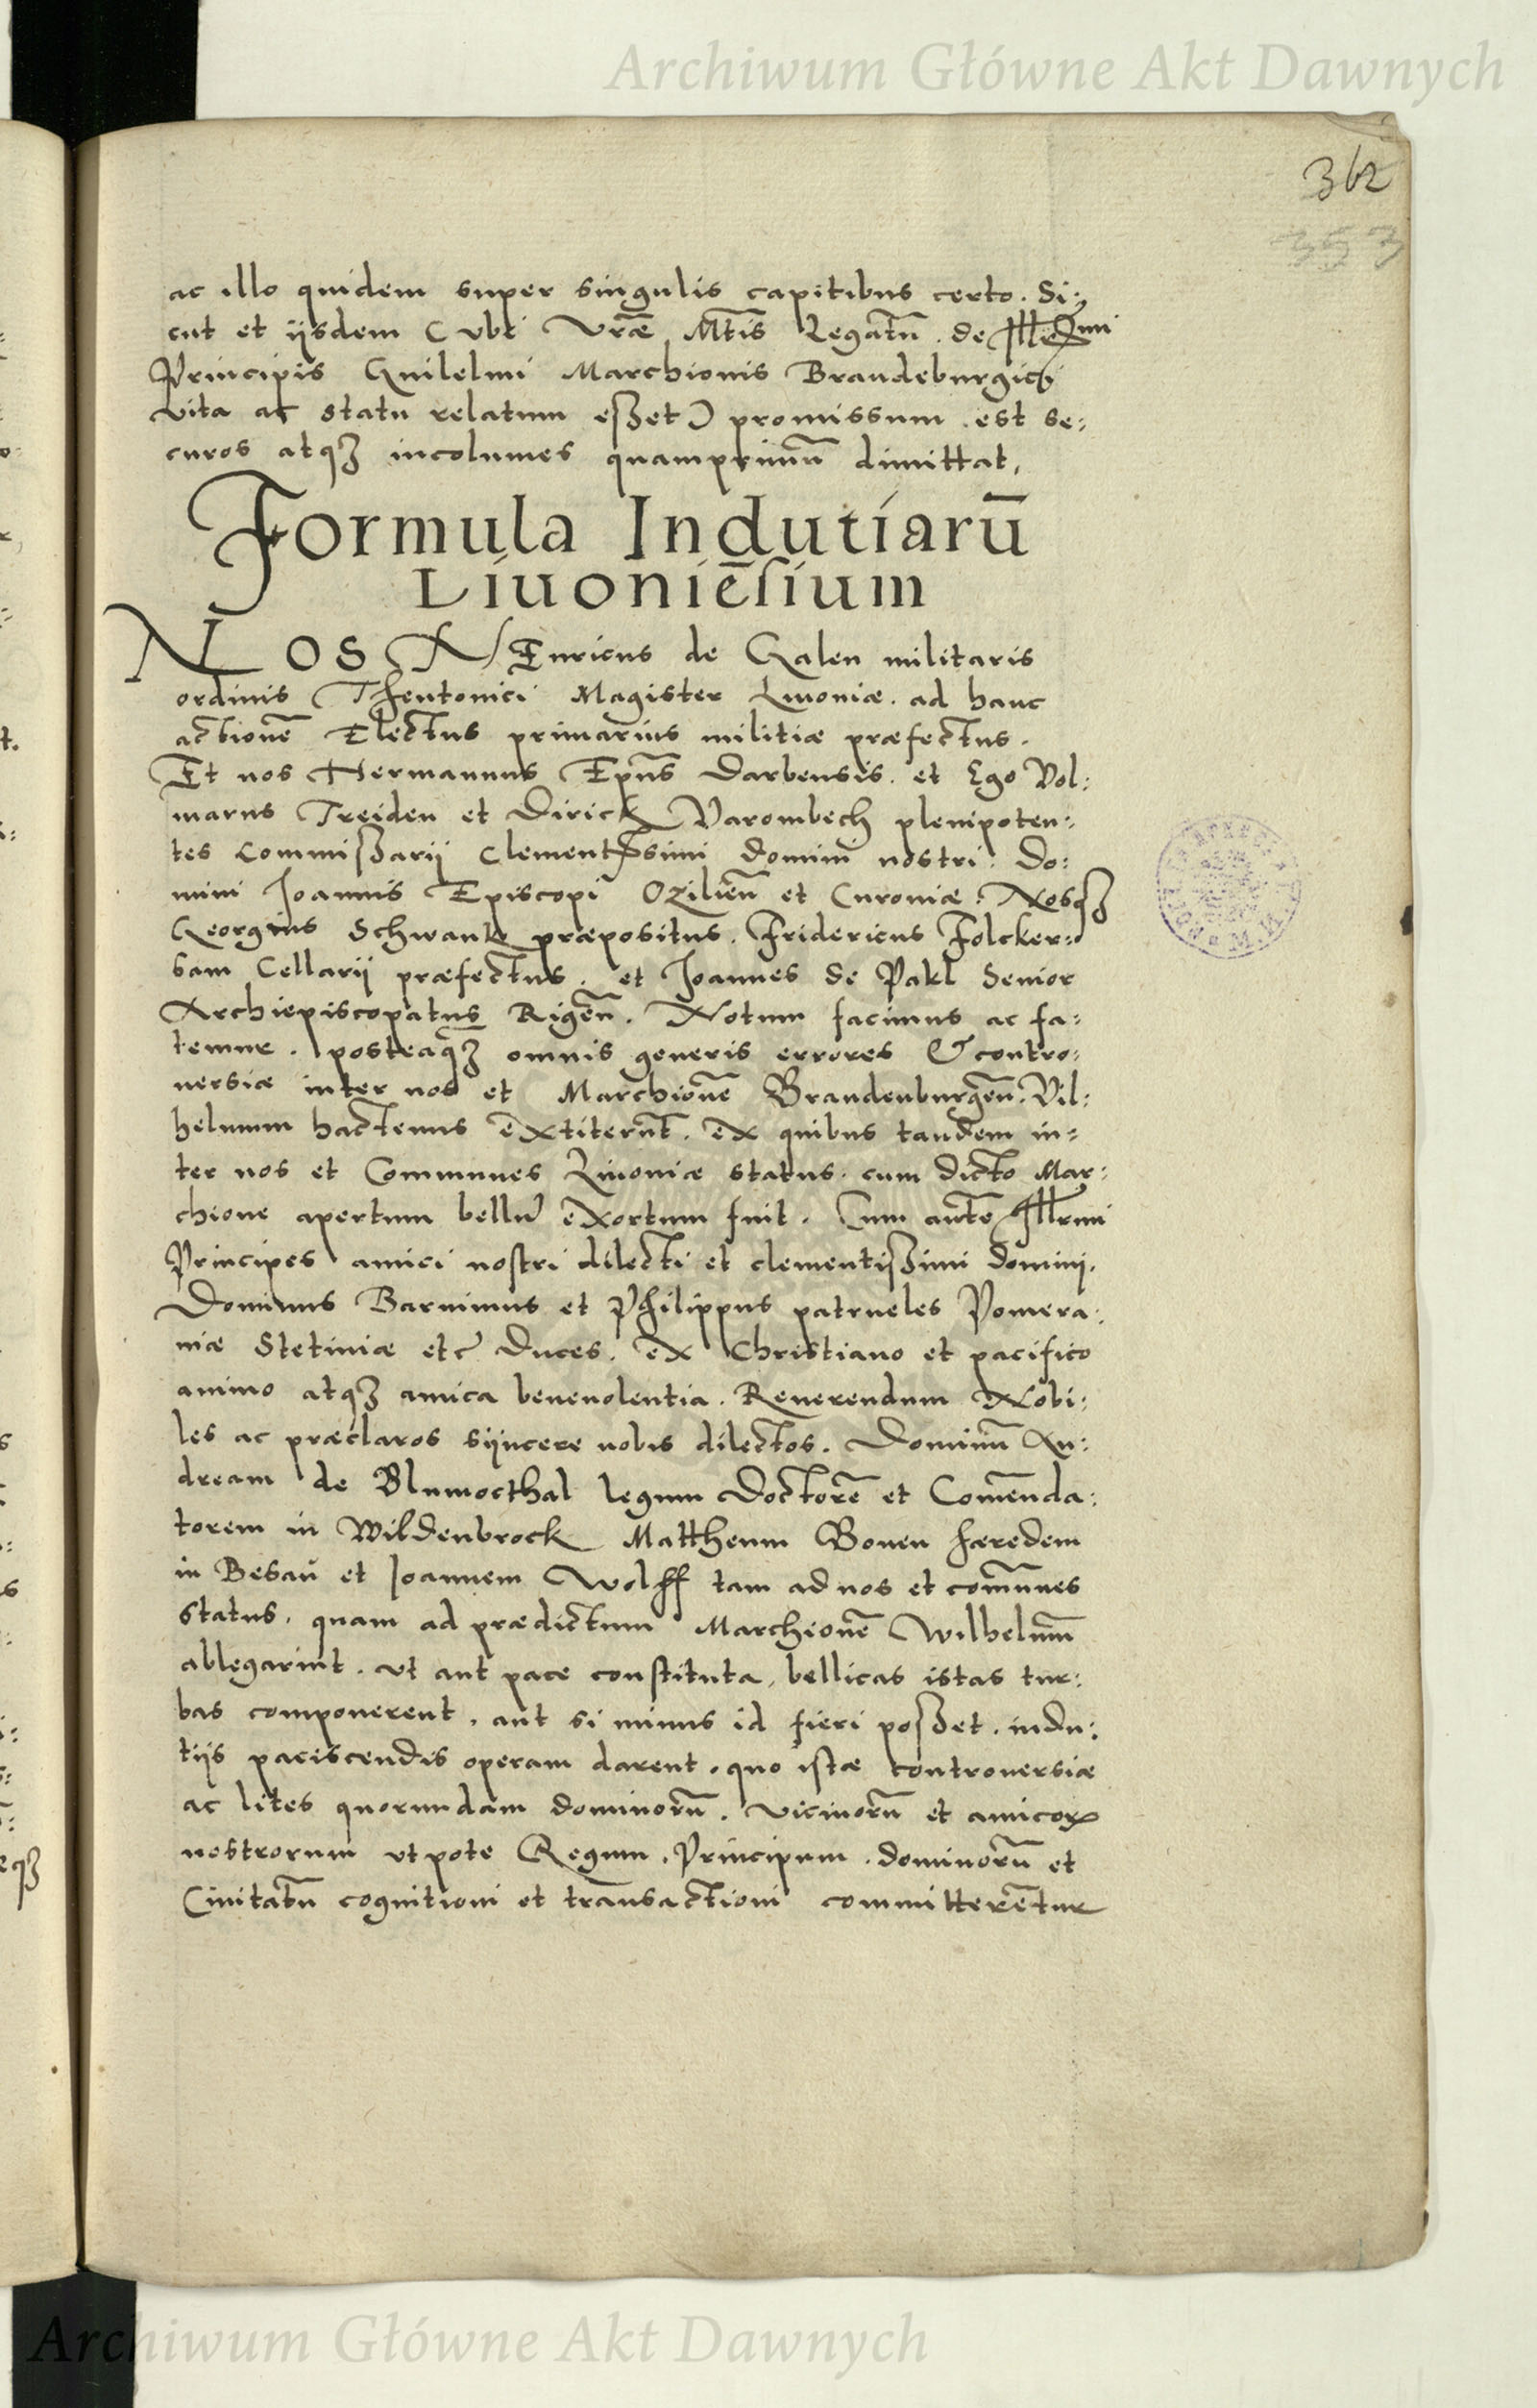 Archiwum Główne Akt Dawnych
362
353
ac illo quidem super singulis capitibus certo. Si:
cut et ijsdem (ubi Vræ Mtis Legatũ. de Illmi
Principis Guilelmi Marchionis Brandeburgici
vita ac statu relatum esset) promissum est se:
curos atqꝫ incolumes quamprimũ dimittat,
Formula Indutiarũ
Liuoniẽsium
NOS Henricus de Galen militaris
ordinis Theutonici Magister Liuoniæ. ad hanc
actionẽ Electus primarius militiæ præfectus.
Et nos Hermannus Epũs Darbensis. et Ego Vol:
marus Treiden et Dirick Varombech plenipoten:
tes Commissarij Clementissimi domini nostri. Do:
mini Joannis Episcopi Oziliẽn et Curoniæ. Nosqꝫ
Georgius Schwank præpositus. Fridericus Folcker:
sam Cellarij præfectus. et Joannes de Pakl Senior
Archiepiscopatus Rigẽn. Notum facimus ac fa:
temur. posteaqꝫ omnis generis errores & contro:
uersiæ inter nos et Marchionẽ Brandenburgẽn. Vil:
helmum hactenus extiterũt. ex quibus tandem in:
ter nos et Communes Liuoniæ status. cum dicto Mar:
chione apertum bellũ exortum fuit. Cum autẽ Illrmi
Principes amici nostri dilecti et clementissimi domini.
Dominus Barnimus et Philippus patrueles Pomera:
niæ Stetiniæ etc̃ Duces. ex Christiano et pacifico
animo atqꝫ amica beneuolentia. Reuerendum Nobi:
les ac præclaros sijncere nobis dilectos. Dominũ An:
dream de Blumocthal legum Doctorẽ et Comẽnda:
torem in Wildenbrock Mattheum Bouen hæredem
in Besaũ et Joannem Wolff tam ad nos et comũnes
status. quam ad prædictum Marchionẽ Wilhelmũ
ablegarint. ut aut pace constituta, bellicas istas tur:
bas componerent, aut si minus id fieri posset. indu:
tijs paciscendis operam darent. quo istæ controuersiæ
ac lites quorundam dominorũ. vicinorũ et amicoꝝ
nostrorum utpote Regum. Principum. dominorũ et
Ciuitatũ cognitioni et transactioni committerẽtur
Archiwum Główne Akt Dawnych